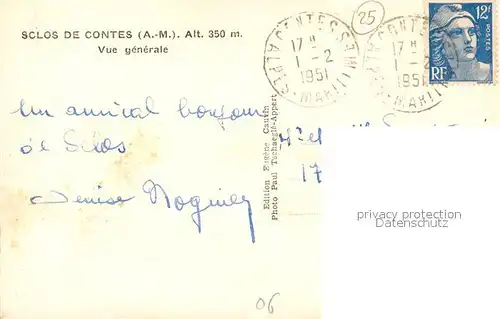 SCLOS DE CONTES (A.-M.). Alt. 350 m.
Vue générale
25
CONTES
17 H
1 - 2
1951
ALPES-MARITIMES
CONTES
17 H
1 - 2
1951
12F
RF
Un amical bonjour
de Sclos
Denise
Edition Eugène Cauvin
Photo Paul Tschaeglé-Appert
17
privacy protection
Datenschutz
06